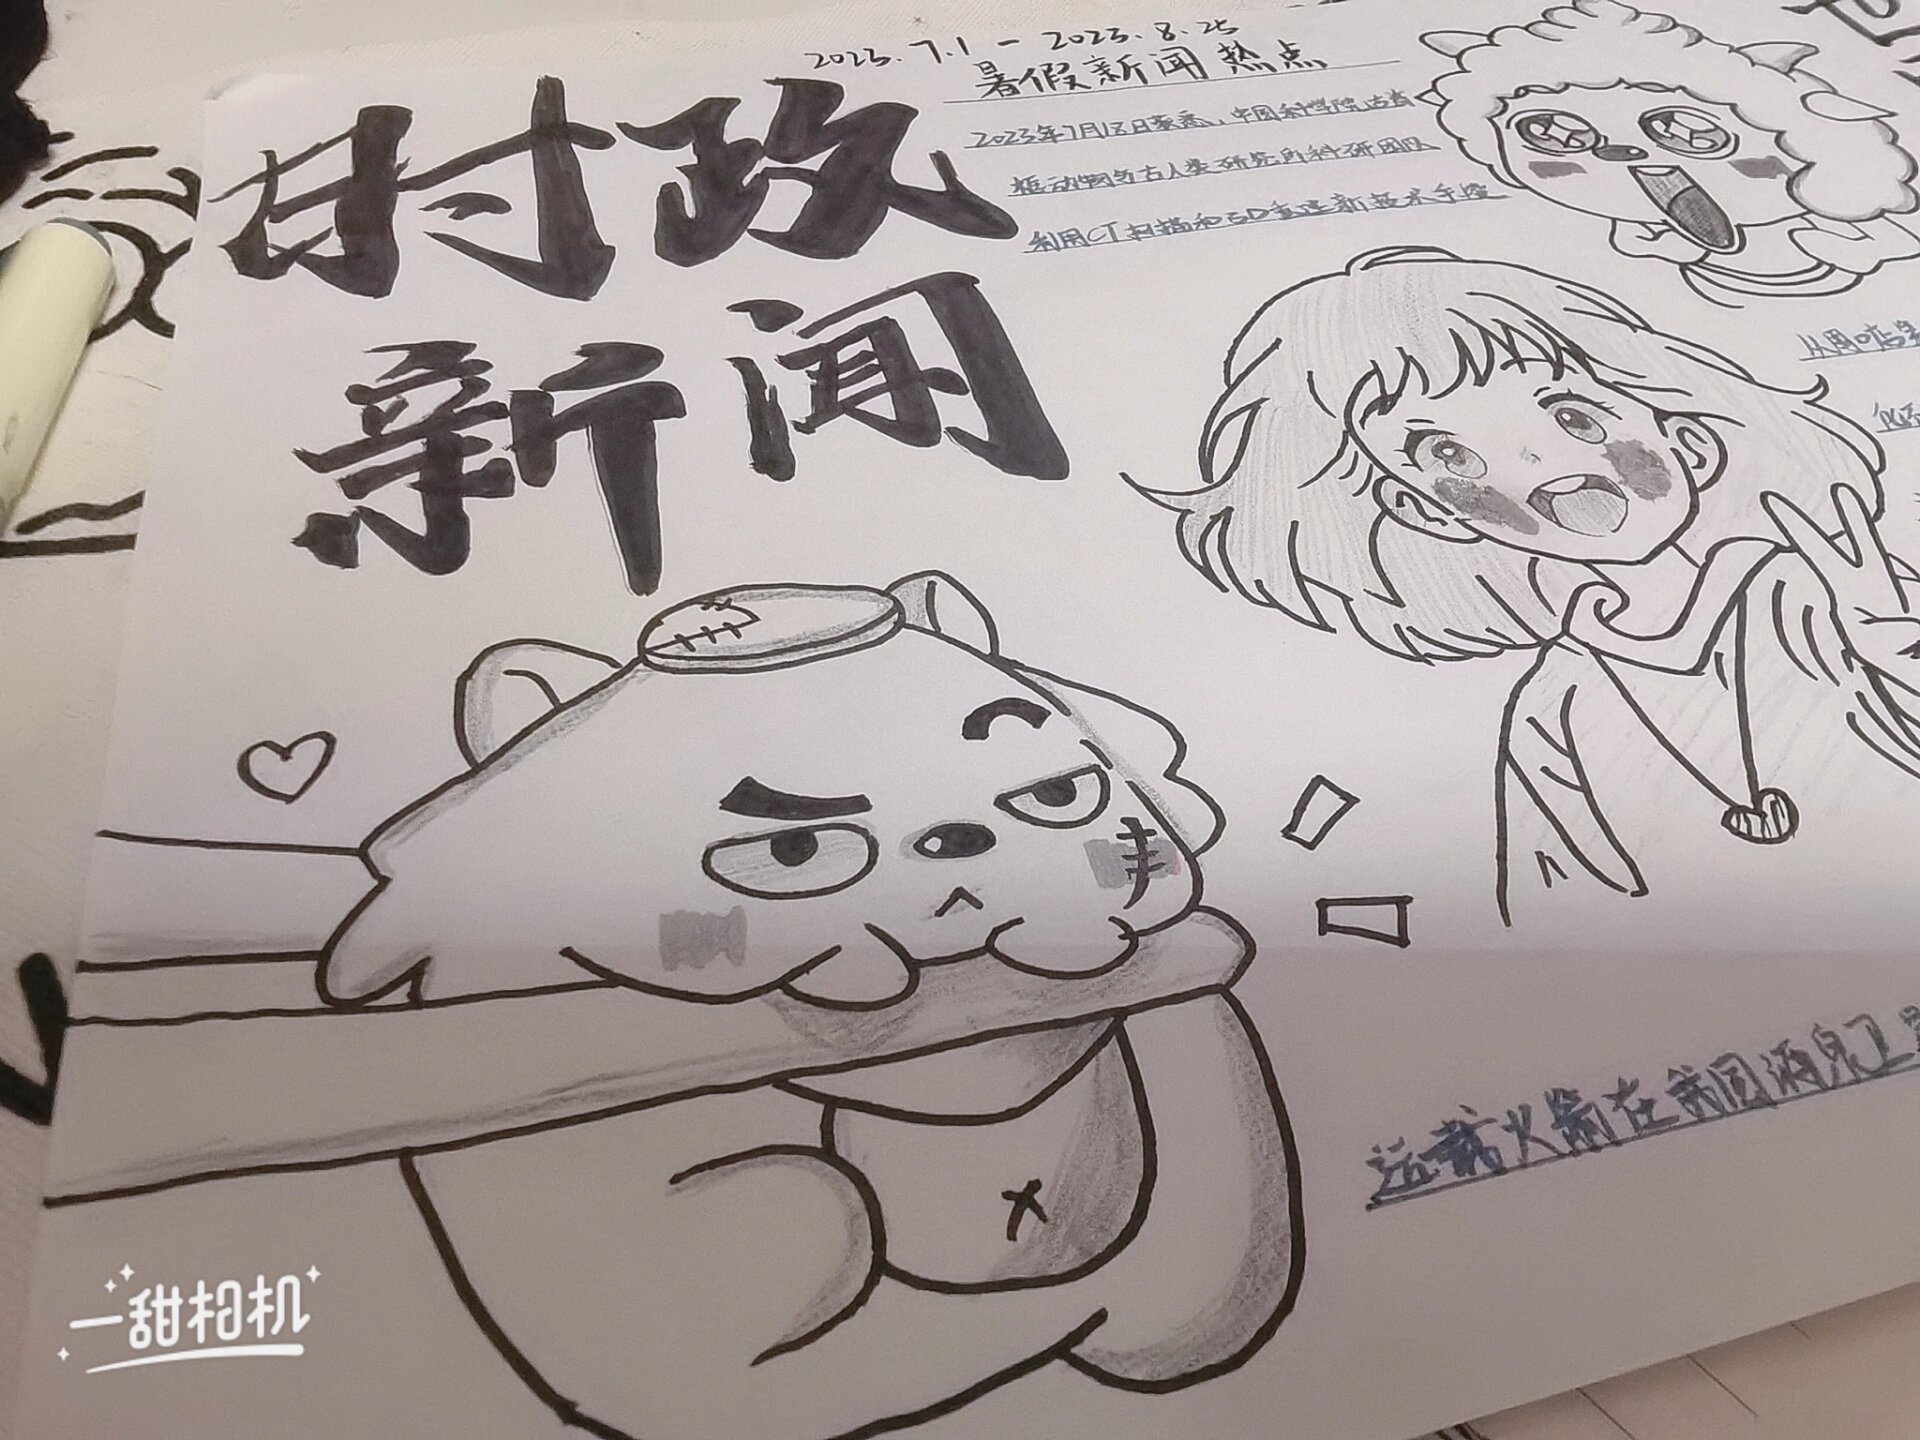 2023.7.1 - 2023.8.25
暑假新闻热点
时政
新闻
2023年7月18日获悉,中国科学院古脊
椎动物与古人类研究所科研团队
利用CT扫描和3D重建新技术手段
从周口店
运载火箭在我国酒泉卫星
一甜相机